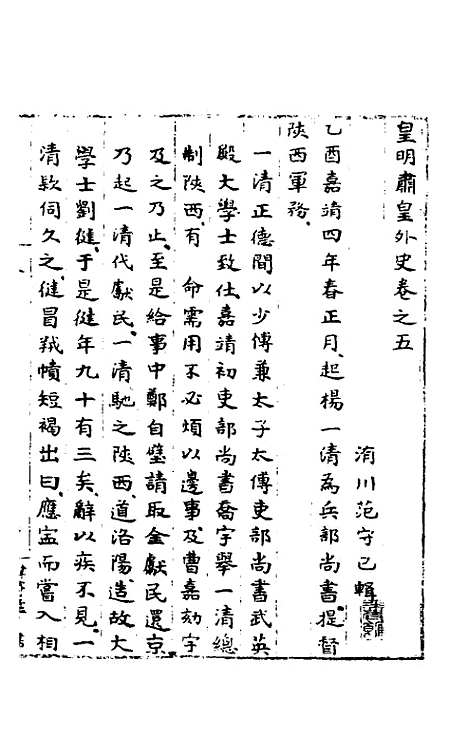 皇明肅皇外史卷之五
洧川范守己輯
乙酉嘉靖四年春正月起楊一清為兵部尚書提督
陝西軍務
一清正德間以少傅兼太子太傅吏部尚書武英
殿大學士致仕嘉靖初吏部尚書喬宇舉一清總
制陝西有 命需用不必煩以邊事及曹嘉劾宇
及之乃止至是給事中鄭自璧請取金獻民還京
乃起一清代獻民一清馳之陝西道洛陽造故大
學士劉健于是健年九十有三矣辭以疾不見一
清款伺久之健冒羢幘短褐出曰應寍而嘗入相